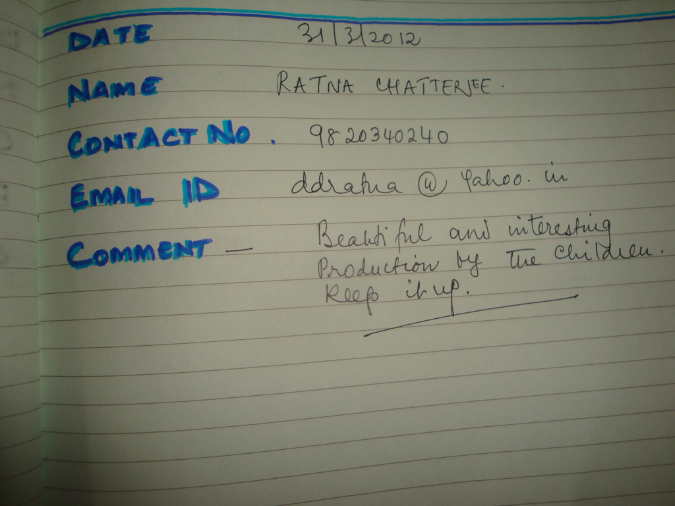 DATE 31/3/2012
NAME RATNA CHATTERJEE.
CONTACT NO. 9820340240
EMAIL ID ddratna @ Yahoo. in
COMMENT — Beautiful and interesting
Production by the children.
Keep it up.